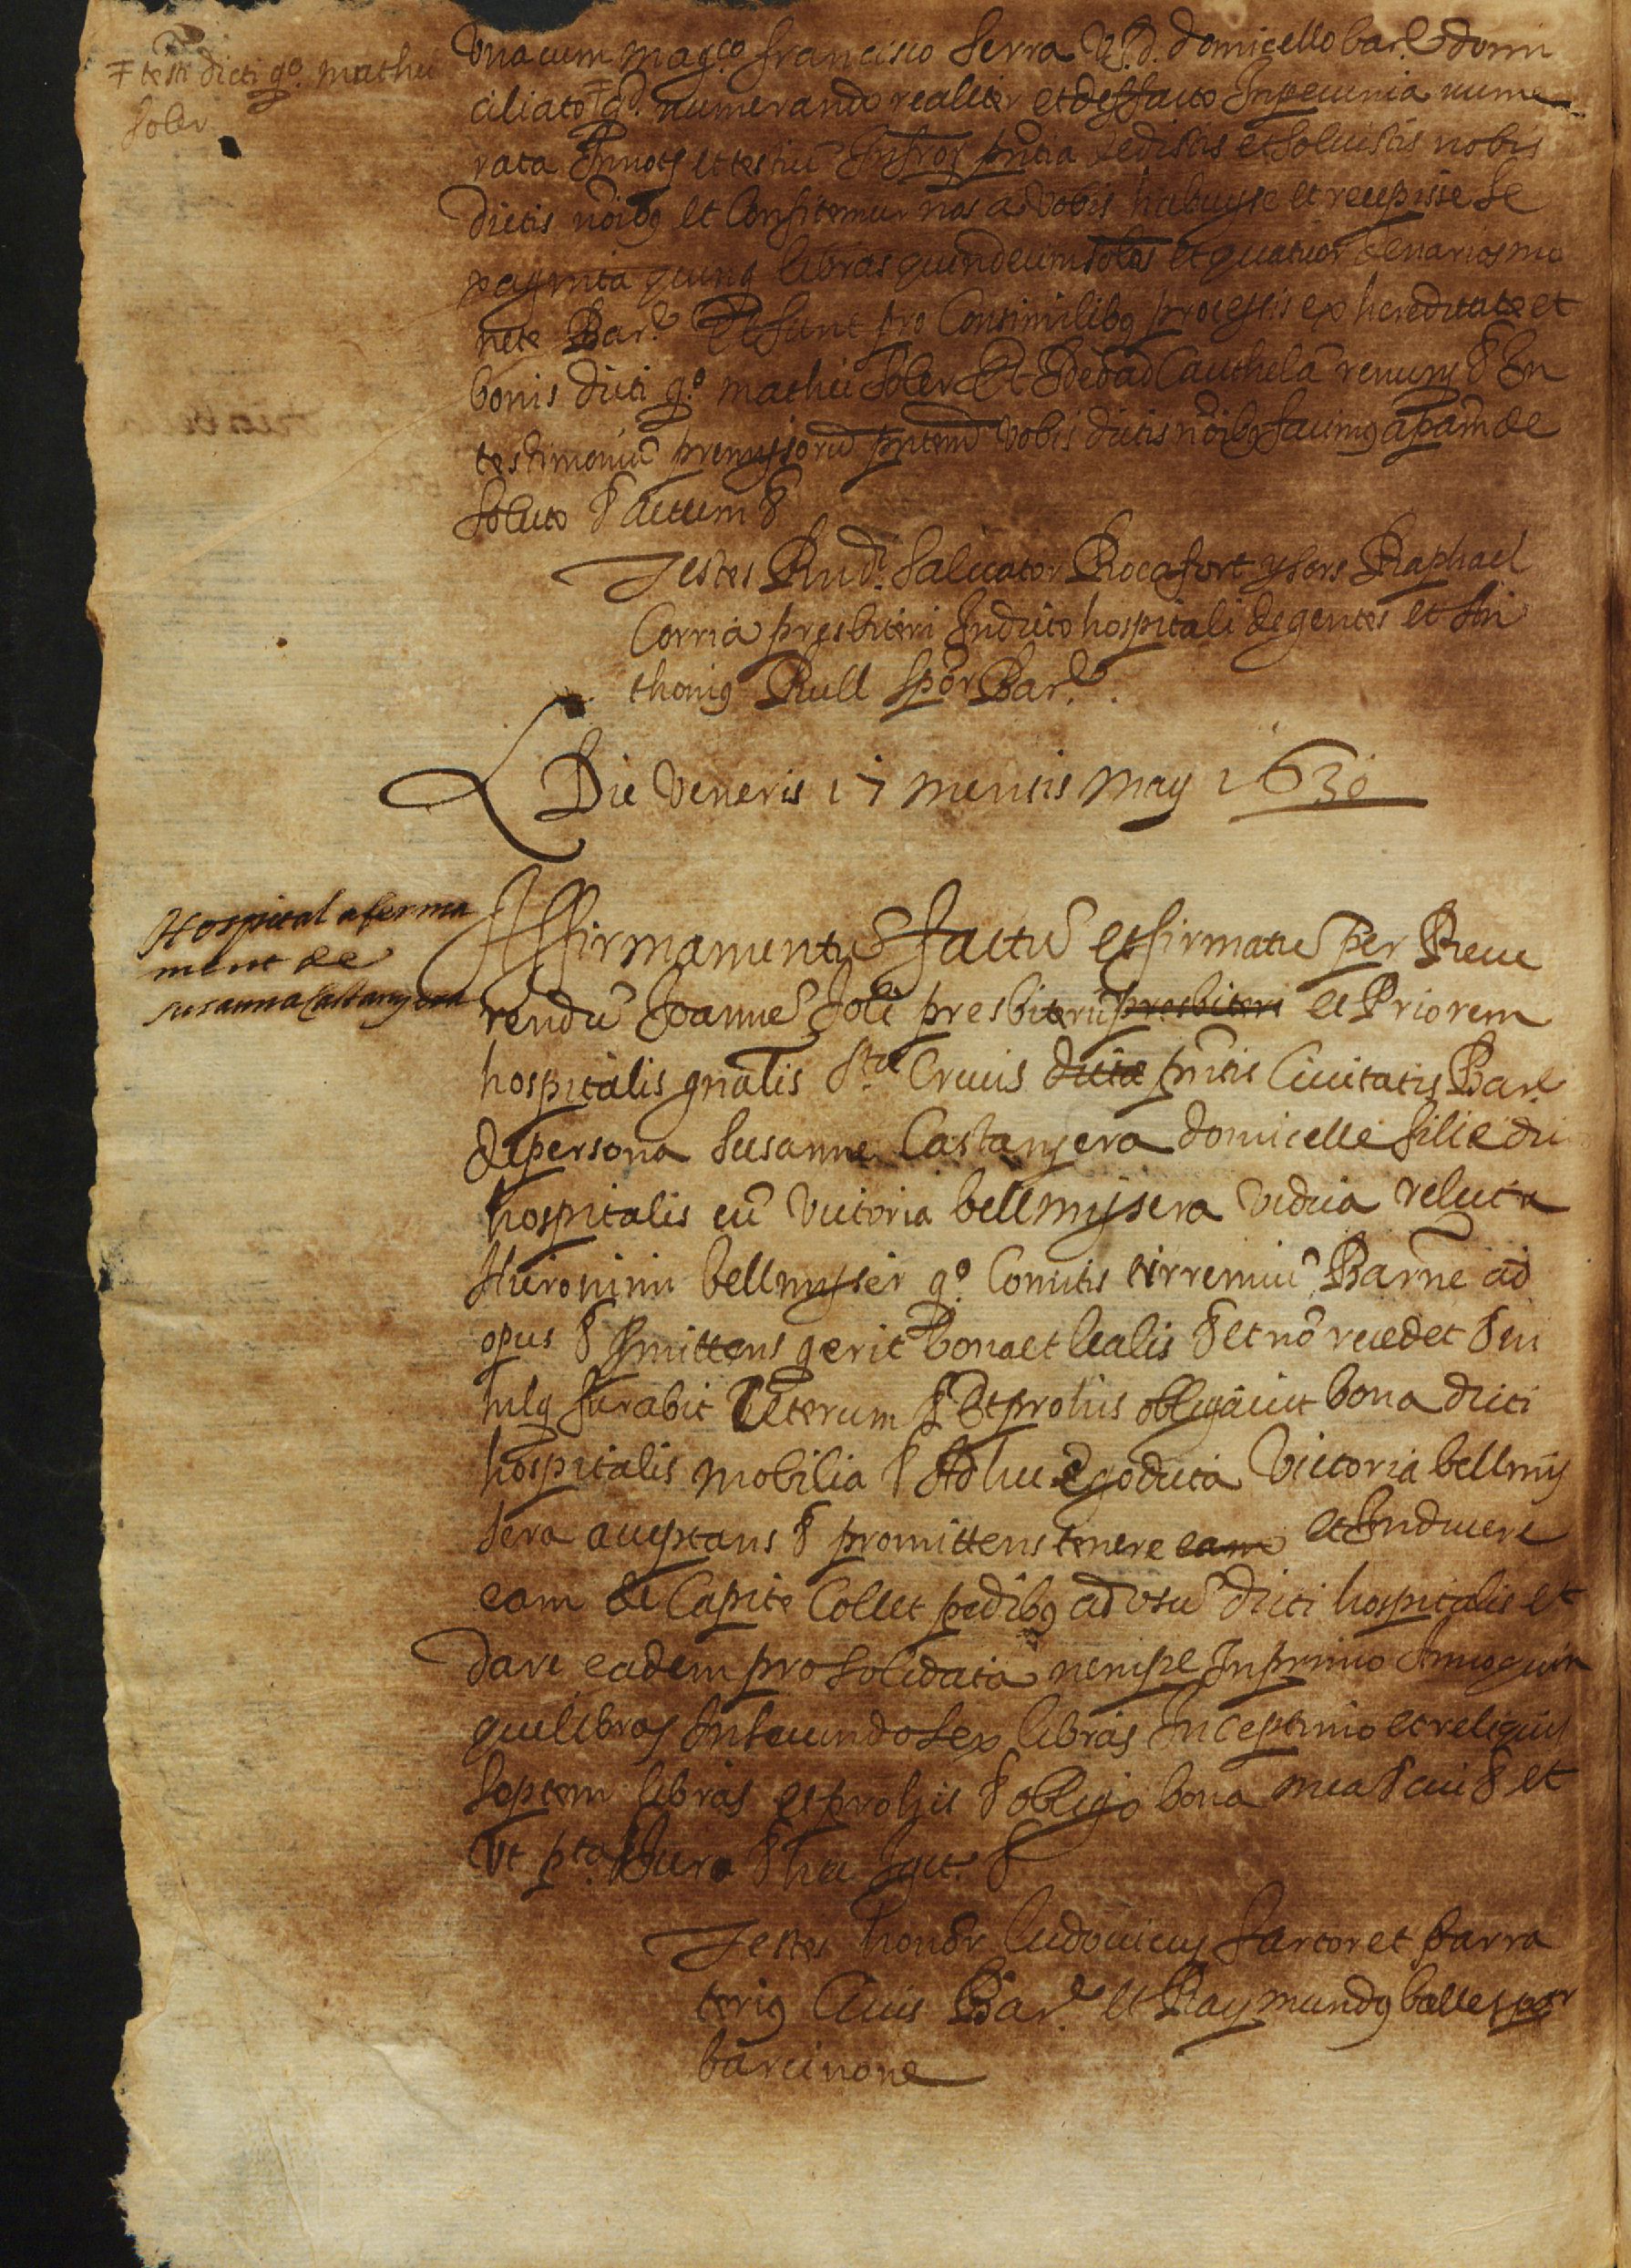 ŧ testi dicti qº. mathei
soler
Una cum magco. francisco serra V.J.d. domicello bare. domi
ciliato ŧ qd. numerando realiter et de facto In pecunia nume
rata In notij et testiũ Infros pñtia dedistis et soluistis nobis
dictis nõibꝯ et Confitemur nos a Vobis habuysse et recepisse se
xagynta quinqꝫ libras quindecim solos et quatuor denarios mo
nete Bare. Et sunt pro Consimilibꝯ processis ex hereditate et
bonis dicti qº. mathei soler Et Ideo ad Cauthelã renuns & In
testimoniũ premyssorũ pñtem Vobis dictis nõibꝯ facimꝯ apam de
soluto & actum &
Testes Rndi. saluator Rocafort ysers Raphael
Corria presbiteri In dicto hospitali degentes et An
thoniꝯ Rull spor Bare.
Die Veneris 17 mensis may 1630
Hospital aferma
ment de
susanna Castanyera
Affirmamentũ factũ et firmatũ per Reue
rendũ Joannẽ Soli presbiterũ presbiteri et Priorem
hospitalis gñalis Ste Crucis dicta pñtis Ciuitatis Bare.
de persona susanne Castanyera domicelle filie di
hospitalis cũ Victoria bellmysera vidua relicta
Hieronimi bellmyser qº. Comitis tirremiũ Barne ad
opus & Promittens qerit bona et lealis & et nõ recedet & in
Iulꝯ furabit Iterum & Et pro his obligauit bona dicti
hospitalis mobilia & Ad hec Ego dicta Victoria bellmy
sera acceptans & promittens tenere eam et Induere
eam de Capite Collet pedibꝯ ad usũ dicti hospitalis et
dare eadem pro solidata nempe In primo Anno quin
que libras In secundo sex libras In ceptimo et reliquis
septem libras et pro his & obligo bona mea & cui & et
Ut pta. Jura & hec Igit. &
Testes honor ludouicus sartor et barra
teriꝯ Ciuis Bare. et Raymundꝯ balle spor
barcinone